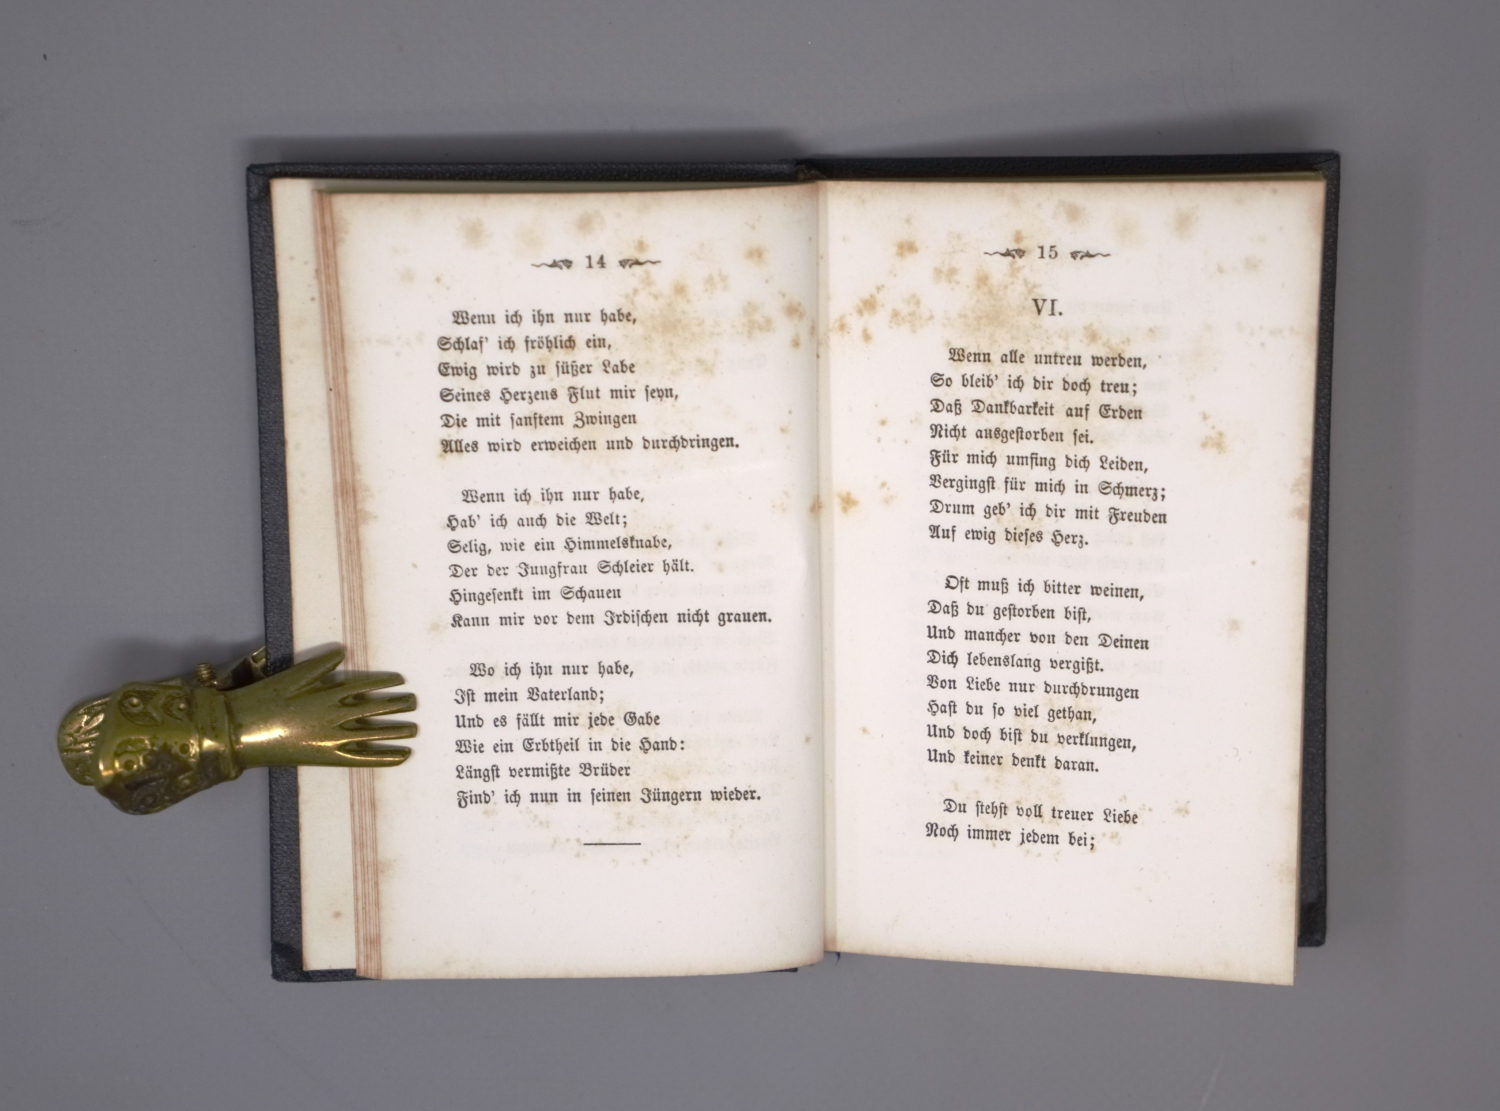 14
Wenn ich ihn nur habe,
Schlaf' ich fröhlich ein,
Ewig wird zu süßer Labe
Seines Herzens Flut mir seyn,
Die mit sanftem Zwingen
Alles wird erweichen und durchdringen.
Wenn ich ihn nur habe,
Hab' ich auch die Welt;
Selig, wie ein Himmelsknabe,
Der der Jungfrau Schleier hält.
Hingesenkt im Schauen
Kann mir vor dem Irdischen nicht grauen.
Wo ich ihn nur habe,
Ist mein Vaterland;
Und es fällt mir jede Gabe
Wie ein Erbtheil in die Hand:
Längst vermißte Brüder
Find' ich nun in seinen Jüngern wieder.
15
VI.
Wenn alle untreu werden,
So bleib' ich dir doch treu;
Daß Dankbarkeit auf Erden
Nicht ausgestorben sei.
Für mich umfing dich Leiden,
Vergingst für mich in Schmerz;
Drum geb' ich dir mit Freuden
Auf ewig dieses Herz.
Oft muß ich bitter weinen,
Daß du gestorben bist,
Und mancher von den Deinen
Dich lebenslang vergißt.
Von Liebe nur durchdrungen
Hast du so viel gethan,
Und doch bist du verklungen,
Und keiner denkt daran.
Du stehst voll treuer Liebe
Noch immer jedem bei;